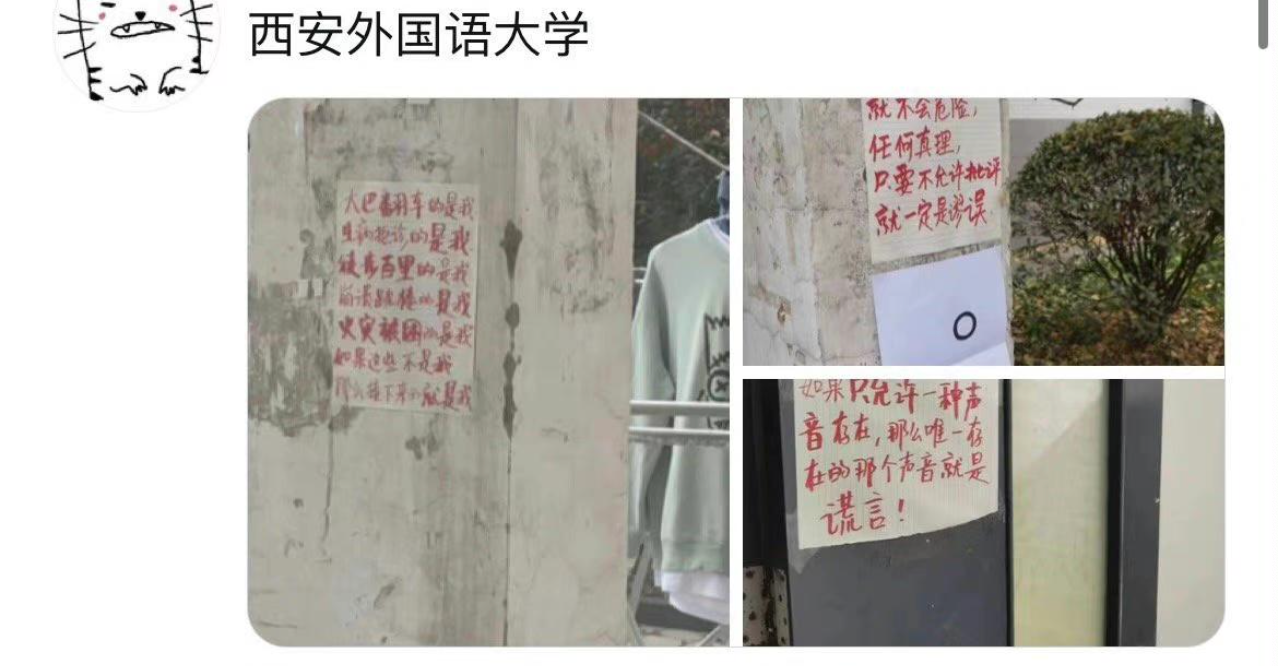 西安外国语大学
大巴翻车的是我
生病拒诊的是我
徒步百里的是我
崩溃跳楼的是我
火灾被困的是我
如果这些不是我
那么接下来就是我
就不会危险,
任何真理,
只要不允许批评
就一定是谬误
如果只允许一种声
音存在,那么唯一存
在的那个声音就是
谎言!